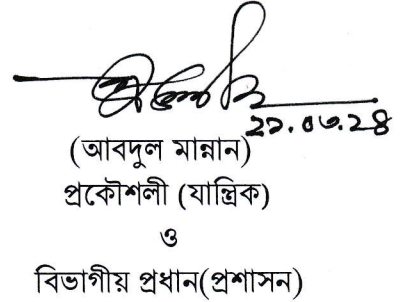 ২১.০৩.২৪
(আবদুল মান্নান)
প্রকৌশলী (যান্ত্রিক)
ও
বিভাগীয় প্রধান(প্রশাসন)